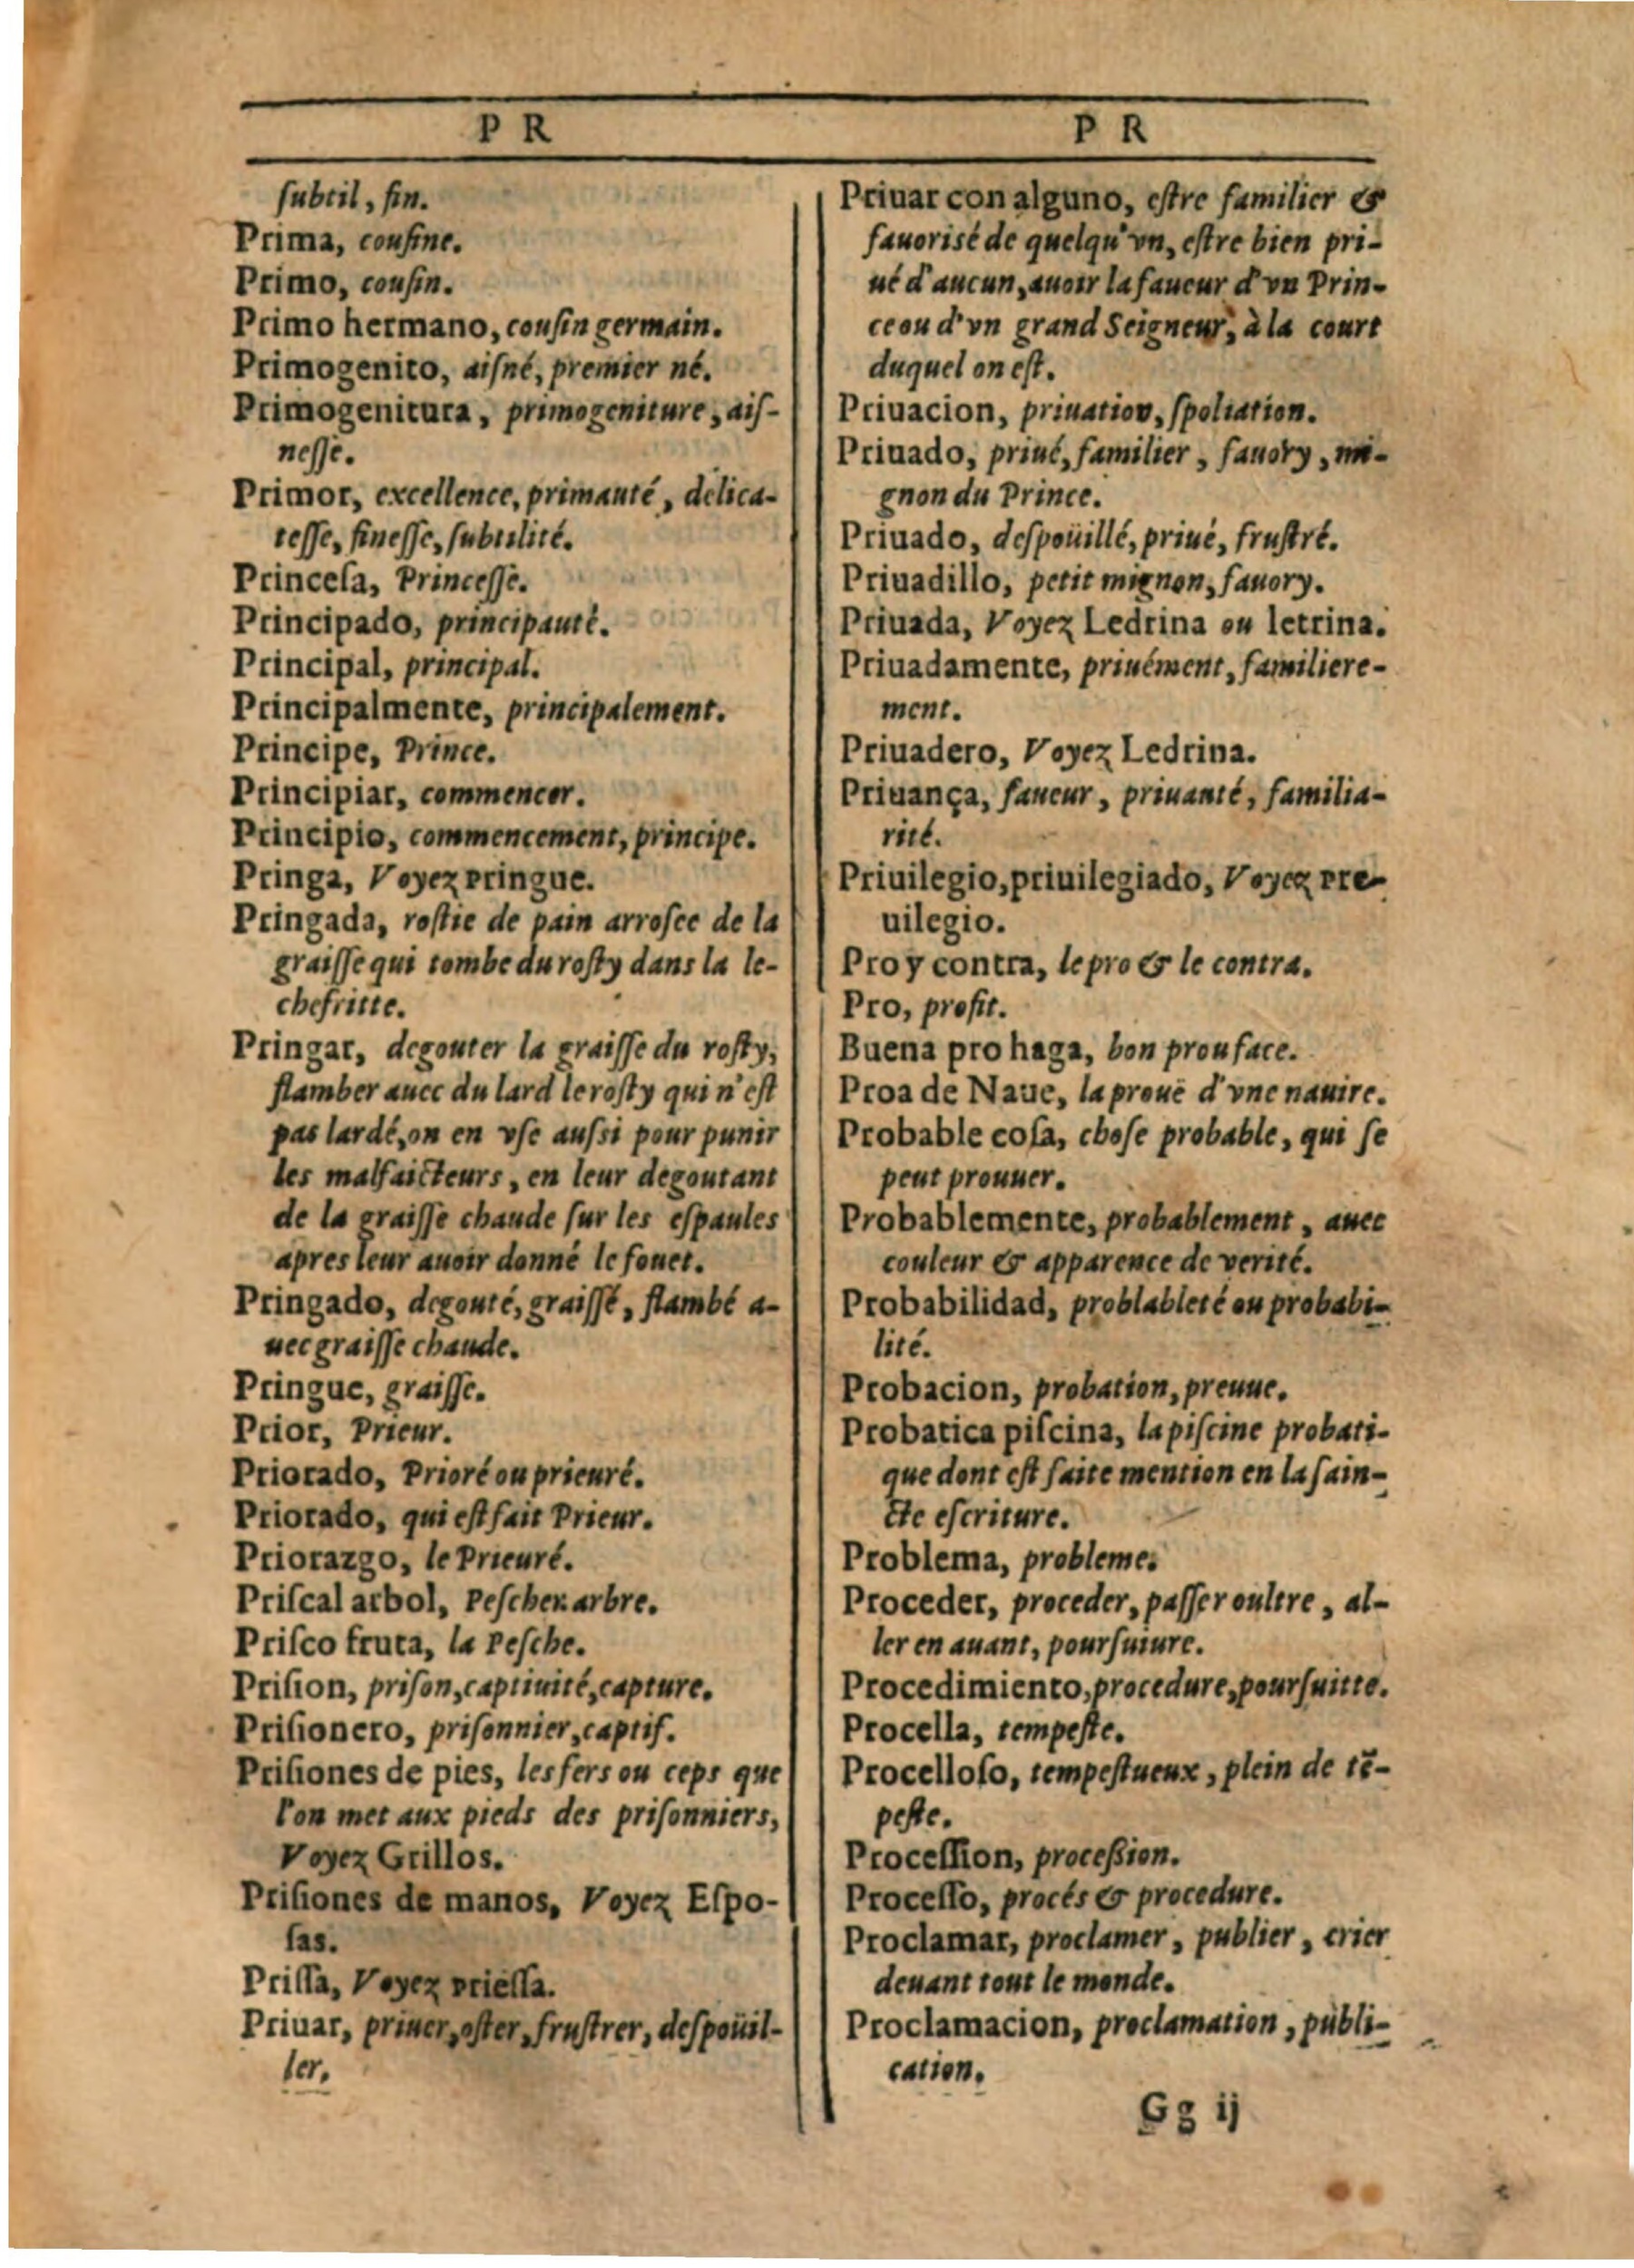 P R
ſubtil, fin.
Prima, couſine.
Primo, couſin.
Primo hermano, couſin germain.
Primogenito, aiſné, premier né.
Primogenitura, primogeniture, aiſ-
neſſe.
Primor, excellence, primauté, delica-
teſſe, fineſſe, ſubtilité.
Princeſa, Princeſſe.
Principado, principauté.
Principal, principal.
Principalmente, principalement.
Principe, Prince.
Principiar, commencer.
Principio, commencement, principe.
Pringa, Voyez pringue.
Pringada, roſtie de pain arroſee de la
graiſſe qui tombe du roſty dans la le-
chefritte.
Pringar, degouter la graiſſe du roſty,
flamber auec du lard le roſty qui n'eſt
pas lardé, on en vſe auſsi pour punir
les malfaicteurs, en leur degoutant
de la graiſſe chaude ſur les eſpaules
apres leur auoir donné le fouet.
Pringado, degouté, graiſſé, flambé a-
uec graiſſe chaude.
Pringue, graiſſe.
Prior, Prieur.
Priorado, Prioré ou prieuré.
Priorado, qui eſt fait Prieur.
Priorazgo, le Prieuré.
Priſcal arbol, Peſcher arbre.
Priſco fruta, la Peſche.
Priſion, priſon, captiuité, capture.
Priſionero, priſonnier, captif.
Priſiones de pies, les fers ou ceps que
l'on met aux pieds des priſonniers,
Voyez Grillos.
Priſiones de manos, Voyez Eſpo-
ſas.
Priſſa, Voyez prieſſa.
Priuar, priuer, oſter, fruſtrer, deſpoüil-
ler.
P R
Priuar con alguno, eſtre familier &
fauorisé de quelqu'vn, eſtre bien pri-
ué d'aucun, auoir la faueur d'vn Prin-
ce ou d'vn grand Seigneur, à la court
duquel on eſt.
Priuacion, priuation, ſpoliation.
Priuado, priué, familier, fauory, mi-
gnon du Prince.
Priuado, deſpoüillé, priué, fruſtré.
Priuadillo, petit mignon, fauory.
Priuada, Voyez Ledrina ou letrina.
Priuadamente, priuément, familiere-
ment.
Priuadero, Voyez Ledrina.
Priuança, faueur, priuauté, familia-
rité.
Priuilegio, priuilegiado, Voyez pre-
uilegio.
Pro y contra, le pro & le contra.
Pro, profit.
Buena pro haga, bon prou face.
Proa de Naue, la prouë d'vne nauire.
Probable coſa, choſe probable, qui ſe
peut prouuer.
Probablemente, probablement, auec
couleur & apparence de verité.
Probabilidad, problableté ou probabi-
lité.
Probacion, probation, preuue.
Probatica piſcina, la piſcine probati-
que dont eſt faite mention en la ſain-
cte eſcriture.
Problema, probleme.
Proceder, proceder, paſſer oultre, al-
ler en auant, pourſuiure.
Procedimiento, procedure, pourſuitte.
Procella, tempeſte.
Procelloſo, tempeſtueux, plein de tẽ-
peſte.
Proceſſion, proceßion.
Proceſſo, procés & procedure.
Proclamar, proclamer, publier, crier
deuant tout le monde.
Proclamacion, proclamation, publi-
cation.
Gg ij